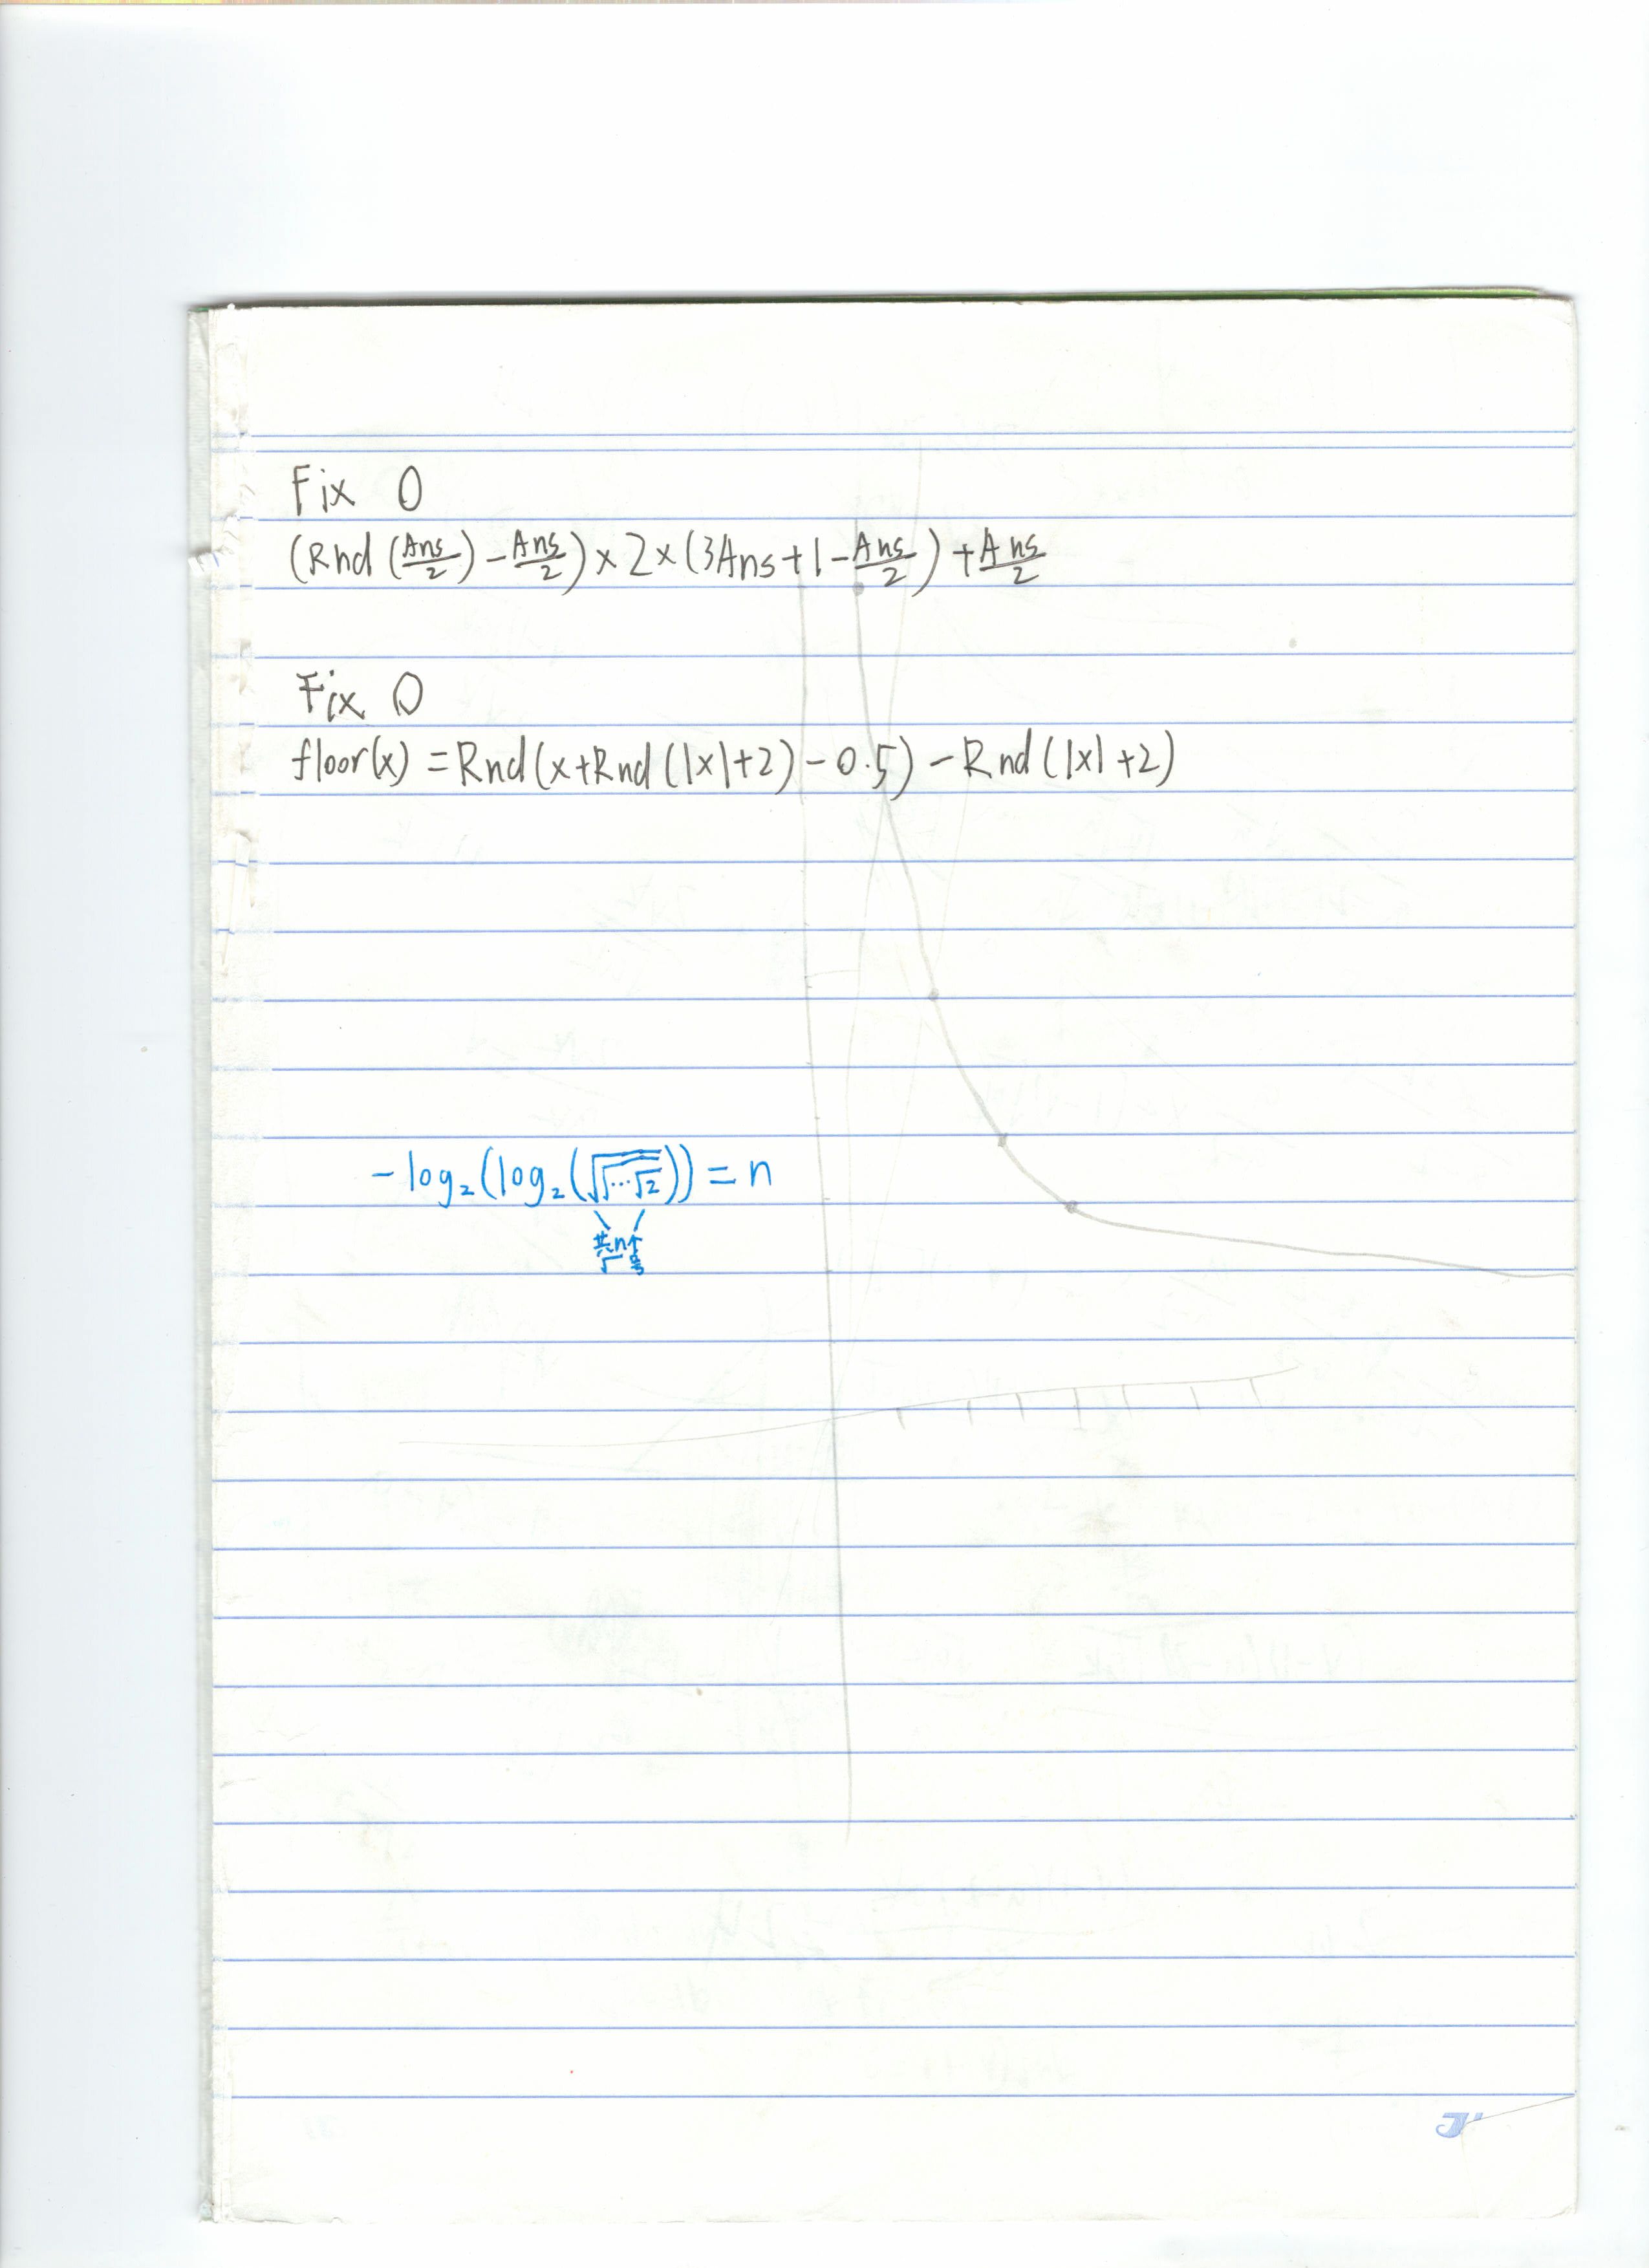 Fix 0
(Rnd(Ans/2)-Ans/2)×2×(3Ans+1-Ans/2)+Ans/2
Fix 0
floor(x)=Rnd(x+Rnd(|x|+2)-0.5)-Rnd(|x|+2)
-log₂(log₂(√√…√2))=n
共n个
√号